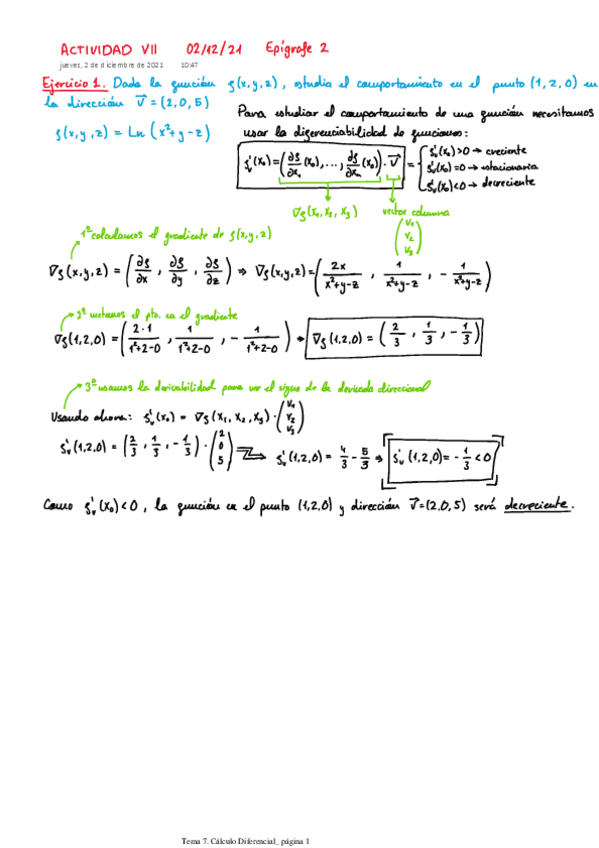 ACTIVIDAD VII 02/12/21 Epígrafe 2
jueves, 2 de diciembre de 2021 10:47
Ejercicio 1. Dada la función f(x,y,z), estudia el comportamiento en el punto (1,2,0) en
la dirección V⃗ = (2,0,5)
f(x,y,z) = Ln(x²+y-z)
Para estudiar el comportamiento de una función necesitamos
usar la diferenciabilidad de funciones:
f'ᵥ(x₀) = (∂f/∂x₁ (x₀), ..., ∂f/∂xₙ (x₀)) · V⃗ = { f'ᵥ(x₀)>0 → creciente
f'ᵥ(x₀)=0 → estacionaria
f'ᵥ(x₀)<0 → decreciente
∇f(x₁, x₂, x₃) vector columna
(v₁ v₂ v₃)
1º calculamos el gradiente de f(x,y,z)
∇f(x,y,z) = (∂f/∂x, ∂f/∂y, ∂f/∂z) ⇒ ∇f(x,y,z) = (2x/(x²+y-z), 1/(x²+y-z), -1/(x²+y-z))
2º metemos el pto. en el gradiente
∇f(1,2,0) = (2·1/(1²+2-0), 1/(1²+2-0), -1/(1²+2-0)) → ∇f(1,2,0) = (2/3, 1/3, -1/3)
3º usamos la derivabilidad para ver el signo de la derivada direccional
Usando ahora: f'ᵥ(x₀) = ∇f(x₁, x₂, x₃) · (v₁ v₂ v₃)
f'ᵥ(1,2,0) = (2/3, 1/3, -1/3) · (2 0 5) ⇒ f'ᵥ(1,2,0) = 4/3 - 5/3 ⇒ f'ᵥ(1,2,0) = -1/3 < 0
Como f'ᵥ(x₀)<0, la función en el punto (1,2,0) y dirección V⃗=(2,0,5) será decreciente.
Tema 7. Cálculo Diferencial_ página 1